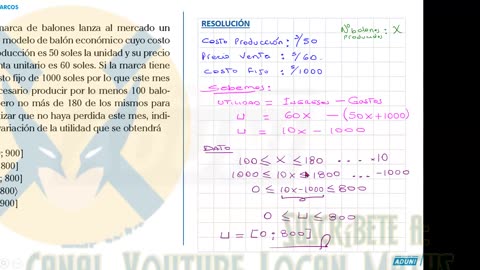 ARCOS
marca de balones lanza al mercado un
modelo de balón económico cuyo costo
ducción es 50 soles la unidad y su precio
nta unitario es 60 soles. Si la marca tiene
sto fijo de 1000 soles por lo que este mes
cesario producir por lo menos 100 balo-
ero no más de 180 de los mismos para
izar que no haya perdida este mes, indi-
variación de la utilidad que se obtendrá
; 900]
800]
; 800]
; 800⟩
900]
RESOLUCIÓN
Nº balones : X
producidos
Costo Producción : S/50
Precio Venta : S/60.
Costo Fijo : S/1000
Sabemos:
Utilidad = Ingresos - Gastos
U = 60X - (50X+1000)
U = 10X - 1000
DATO
100 ≤ X ≤ 180 .... .10
1000 ≤ 10X ≤ 1800 ... -1000
0 ≤ 10X-1000 ≤ 800
U
0 ≤ U ≤ 800
U = [0 ; 800]
SUSCRÍBETE A:
Canal Youtube Logan Mentus
ADUNI